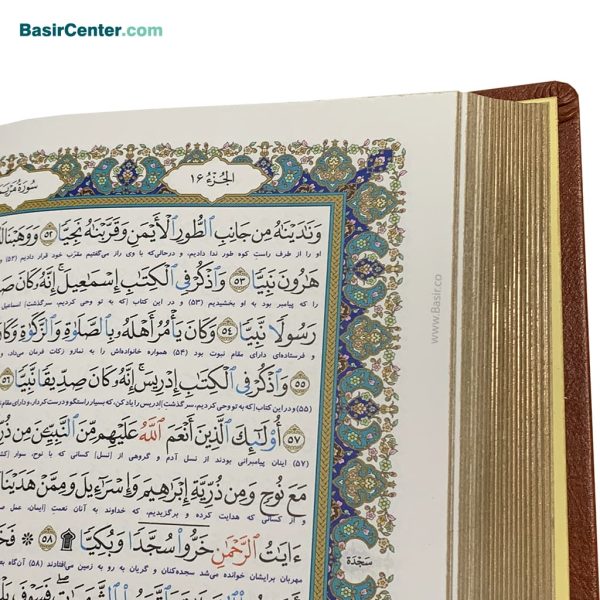 BasirCenter.com
الجزء ۱۶
سورة مریم
وَنَٰدَیۡنَٰهُ مِن جَانِبِ ٱلطُّورِ ٱلۡأَیۡمَنِ وَقَرَّبۡنَٰهُ نَجِیّٗا ۵۲ وَوَهَبۡنَا لَهُ
او را از طرف راستِ کوه طور ندا دادیم، و درحالی‌که با وی راز می‌گفتیم مقرّب خود قرار دادیم (۵۲)
هَٰرُونَ نَبِیّٗا ۵۳ وَٱذۡکُرۡ فِی ٱلۡکِتَٰبِ إِسۡمَٰعِیلَۚ إِنَّهُۥ کَانَ
را که پیامبر بود به او بخشیدیم (۵۳) و در این کتاب [که به تو وحی کردیم، سرگذشتِ] اسماعیل
رَسُولٗا نَّبِیّٗا ۵۴ وَکَانَ یَأۡمُرُ أَهۡلَهُۥ بِٱلصَّلَوٰةِ وَٱلزَّکَوٰةِ وَکَانَ
و فرستاده‌ای دارای مقام نبوت بود (۵۴) همواره خانواده‌اش را به نماز و زکات فرمان می‌داد،
۵۵ وَٱذۡکُرۡ فِی ٱلۡکِتَٰبِ إِدۡرِیسَۚ إِنَّهُۥ کَانَ صِدِّیقٗا نَّبِیّٗا ۵۶
(۵۵) و در این کتاب [که به تو وحی کردیم، سرگذشتِ] ادریس را یاد کن، که بسیار راستگو و درست کردار، و دارای مقام
۵۷ أُوْلَٰٓئِکَ ٱلَّذِینَ أَنۡعَمَ ٱللَّهُ عَلَیۡهِم مِّنَ ٱلنَّبِیِّـۧنَ مِن
(۵۷) اینان پیامبرانی بودند از نسل آدم و گروهی از [نسل] کسانی که با نوح، سوار
مَعَ نُوحٖ وَمِن ذُرِّیَّةِ إِبۡرَٰهِیمَ وَإِسۡرَٰٓءِیلَ وَمِمَّنۡ هَدَیۡنَا
و از کسانی که هدایت کرده و برگزیدیم، که خداوند به آنان نعمتِ [ایمان، عمل
ءَایَٰتُ ٱلرَّحۡمَٰنِ خَرُّواْۤ سُجَّدٗا وَبُکِیّٗا ۩ ۵۸ ۞
مهربان برایشان خوانده می‌شد سجده‌کنان و گریان به رو به زمین می‌افتادند (۵۸) آن‌گاه
سَجدَة
ٱلشَّهَوَٰتِۖ فَسَوۡفَ
www.Basir.co